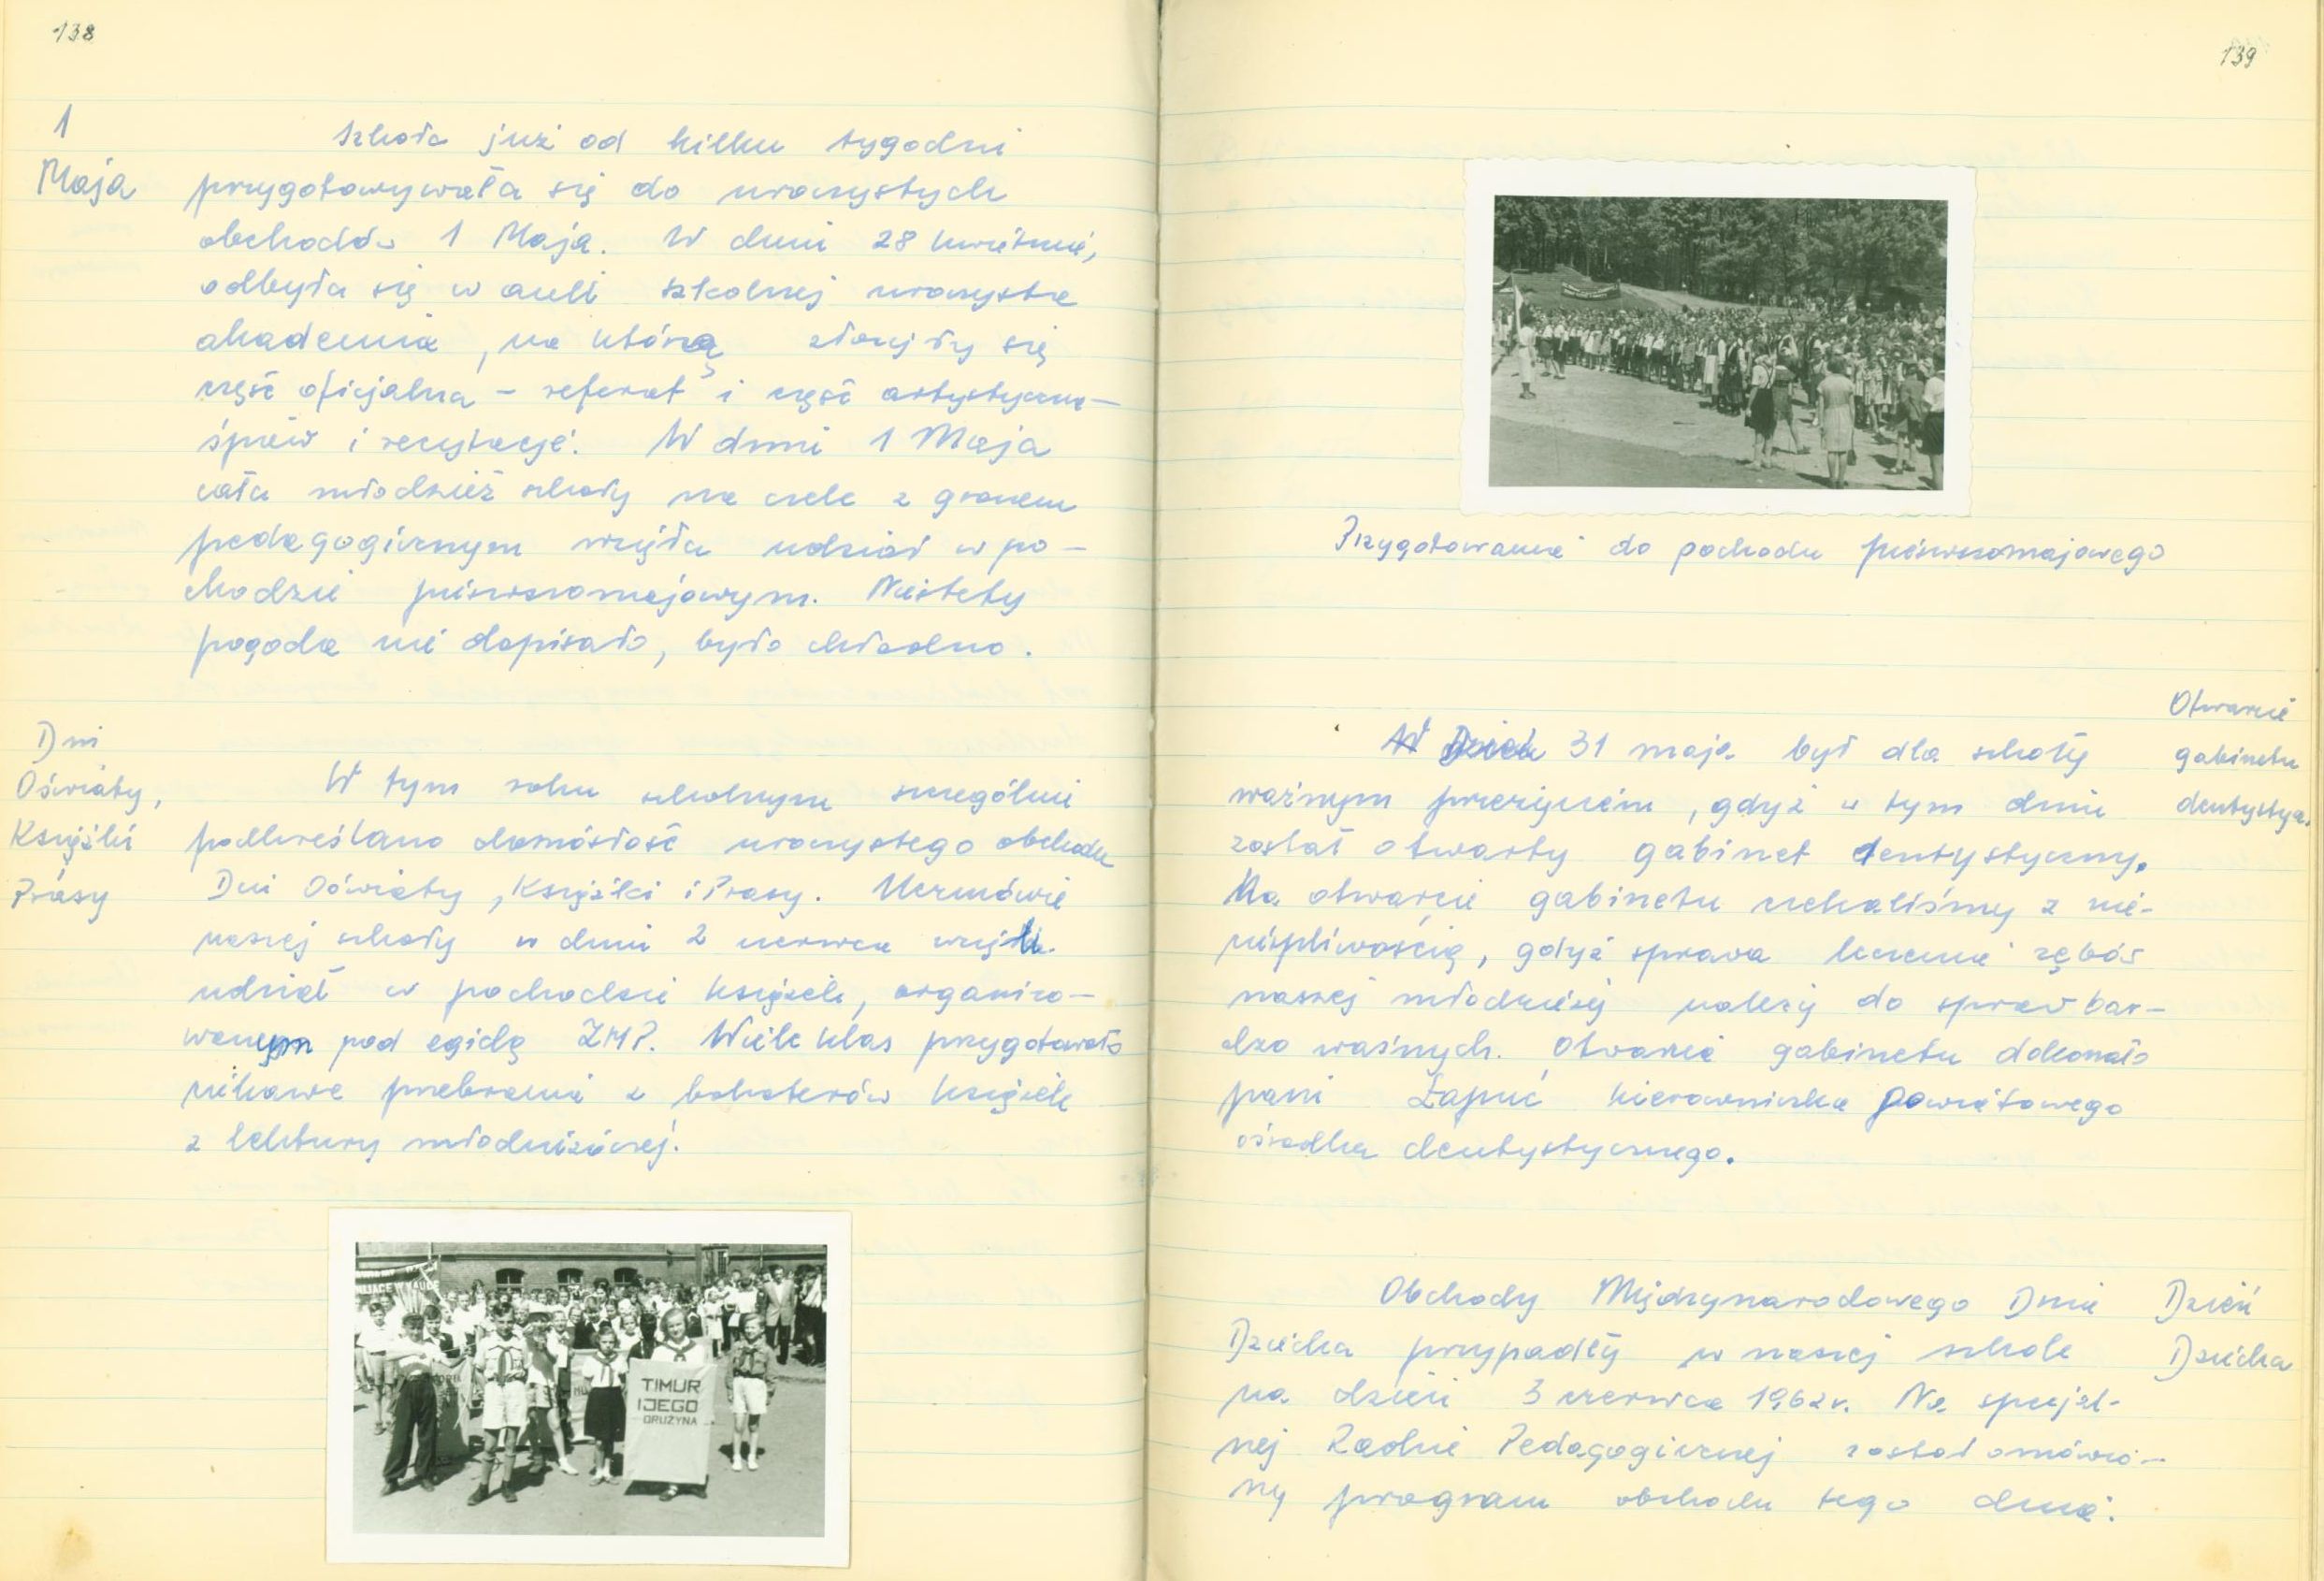 138
1
Maja
Szkoła już od kilku tygodni
przygotowywała się do uroczystych
obchodów 1 Maja. W dniu 28 kwietnia,
odbyła się w auli szkolnej uroczysta
akademia, na którą złożyły się
część oficjalna – referat i część artystyczna –
śpiew i recytacje. W dniu 1 Maja
cała młodzież szkoły na czele z gronem
pedagogicznym wzięła udział w po-
chodzie pierwszomajowym. Niestety
pogoda nie dopisała, było chłodno.
Dni
Oświaty,
Książki
Prasy
W tym roku szkolnym szczególnie
podkreślano doniosłość uroczystego obchodu
Dni Oświaty, Książki i Prasy. Uczniowie
naszej szkoły w dniu 2 czerwca wzięli
udział w pochodzie książek, organizo-
wanym pod egidą ZMP. Wiele klas przygotowało
ciekawe przebrania z bohaterów książek
z lektury młodzieżowej.
NAUCE
TIMUR
I JEGO
DRUŻYNA
139
Przygotowania do pochodu pierwszomajowego
Otwarcie
gabinetu
dentystycz.
W Dzień 31 maja był dla szkoły
ważnym przeżyciem, gdyż w tym dniu
został otwarty gabinet dentystyczny.
Na otwarcie gabinetu czekaliśmy z nie-
cierpliwością, gdyż sprawa leczenia zębów
naszej młodzieży należy do spraw bar-
dzo ważnych. Otwarcia gabinetu dokonała
pani Łapuć kierowniczka powiatowego
ośrodka dentystycznego.
Dzień
Dziecka
Obchody Międzynarodowego Dnia
Dziecka przypadły w naszej szkole
na dzień 3 czerwca 1962 r. Na specjal-
nej Radzie Pedagogicznej został omówio-
ny program obchodu tego dnia.